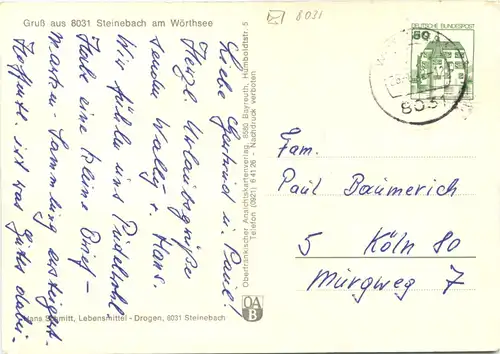 Gruß aus 8031 Steinebach am Wörthsee
8031
Liebe Gertrud u. Paul!
Herzl. Urlaubsgrüße
senden Wally u. Hans.
Wir fühlen uns Pudelwohl.
Habe eine kleine Brief-
marken-Sammlung
Hoffentl. ist was gutes dabei.
Oberfränkischer Ansichtskartenverlag, 8580 Bayreuth, Humboldtstr. 5
Telefon (0921) 6 41 26 - Nachdruck verboten
DEUTSCHE BUNDESPOST
50
8031
Fam.
Paul Bäumerich
5 Köln 80
Mürgweg 7
OA
B
Hans Schmitt, Lebensmittel - Drogen, 8031 Steinebach